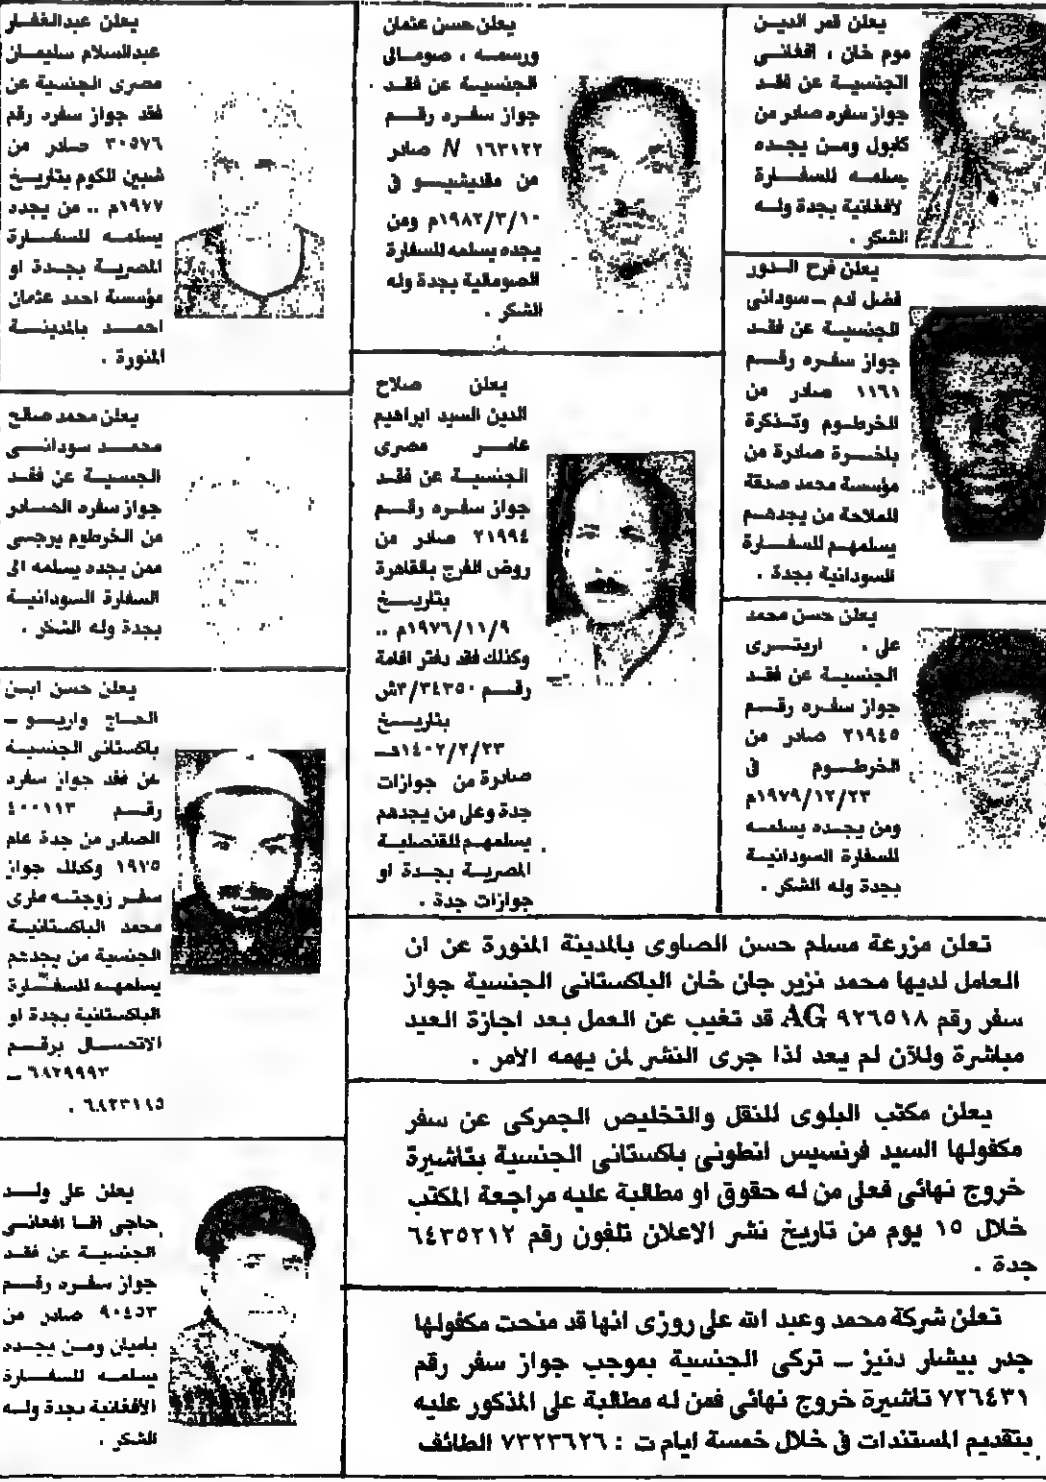 يعلن قمر الدين
موم خان ، افغانى
الجنسية عن فقد
جواز سفره صادر من
كابول ومن يجده
يسلمه للسفارة
لافغانية بجدة وله
الشكر .
يعلن فرح الدور
فضل ادم - سودانى
الجنسية عن فقد
جواز سفره رقم
١١٦١ صادر من
الخرطوم وتذكرة
باخرة صادرة من
مؤسسة محمد صدقة
للملاحة من يجدهم
يسلمهم للسفارة
السودانية بجدة .
يعلن حسن محمد
على . اريترى
الجنسية عن فقد
جواز سفره رقم
٢١٩٤٥ صادر من
الخرطوم فى
١٩٧٩/١٢/٢٣م
ومن يجده يسلمه
للسفارة السودانية
بجدة وله الشكر .
يعلن حسن عثمان
ورسمه ، صومالى
الجنسية عن فقد
جواز سفره رقم
N ١٦٣١٢٢ صادر
من مقديشيو فى
١٩٨٢/٣/١٠م ومن
يجده يسلمه للسفارة
الصومالية بجدة وله
الشكر .
يعلن صلاح
الدين السيد ابراهيم
عامر مصرى
الجنسية عن فقد
جواز سفره رقم
٢١٩٩٤ صادر من
روض الفرج بالقاهرة
بتاريخ
١٩٧٦/١١/٩م ..
وكذلك فقد دفتر اقامة
رقم ٣/٣٤٣٥٠ش
بتاريخ
١٤٠٢/٢/٢٣هـ
صادرة من جوازات
جدة وعلى من يجدهم
يسلمهم للقنصلية
المصرية بجدة او
جوازات جدة .
يعلن عبدالغفار
عبدالسلام سليمان
مصرى الجنسية عن
فقد جواز سفره رقم
٣٠٥٧٦ صادر من
شبين الكوم بتاريخ
١٩٧٧م .. من يجده
يسلمه للسفارة
المصرية بجدة او
مؤسسة احمد عثمان
احمد بالمدينة
المنورة .
يعلن محمد صالح
محمد سودانى
الجنسية عن فقد
جواز سفره الصادر
من الخرطوم يرجى
ممن يجده يسلمه الى
السفارة السودانية
بجدة وله الشكر .
يعلن حسن ابن
الحاج واريو -
باكستانى الجنسية
عن فقد جواز سفره
رقم ٤٠٠١١٣
الصادر من جدة عام
١٩٧٥ وكذلك جواز
سفر زوجته مارى
محمد الباكستانية
الجنسية من يجدهم
يسلمهم للسفارة
الباكستانية بجدة او
الاتصال برقم
٦٨٢٩٩٩٣ -
٦٨٢٣١٩٥ .
يعلن على ولد
حاجى اقا افغانى
الجنسية عن فقد
جواز سفره رقم
٩٠٤٥٣ صادر من
باميان ومن يجده
يسلمه للسفارة
الافغانية بجدة وله
الشكر .
تعلن مزرعة مسلم حسن الصاوى بالمدينة المنورة عن ان
العامل لديها محمد نزير جان خان الباكستانى الجنسية جواز
سفر رقم AG ٩٢٦٥١٨ قد تغيب عن العمل بعد اجازة العيد
مباشرة وللآن لم يعد لذا جرى النشر لمن يهمه الأمر .
يعلن مكتب البلوى للنقل والتخليص الجمركى عن سفر
مكفولها السيد فرنسيس انطونى باكستانى الجنسية بتاشيرة
خروج نهائى فعلى من له حقوق او مطالبة عليه مراجعة المكتب
خلال ١٥ يوم من تاريخ نشر الاعلان تلفون رقم ٦٤٣٥٢١٢
جدة .
تعلن شركة محمد وعبد الله على روزى انها قد منحت مكفولها
جدر بيشار دنيز - تركى الجنسية بموجب جواز سفر رقم
٧٢٦٤٣١ تاشيرة خروج نهائى فمن له مطالبة على المذكور عليه
بتقديم المستندات فى خلال خمسة ايام ت : ٧٣٢٣٦٢٦ الطائف